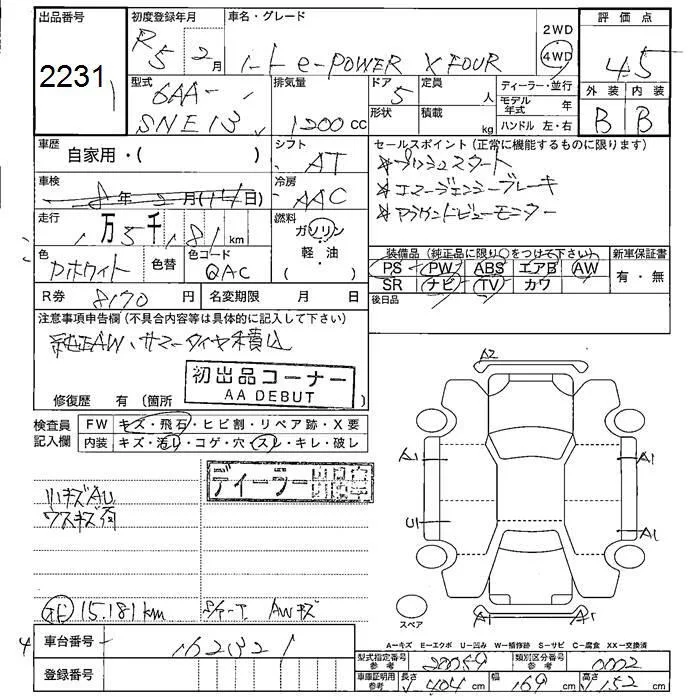 出品番号 2231
初度登録年月 R5 2月
車名・グレード ノート e-POWER X FOUR
2WD
4WD
評価点 4.5
型式 6AA-
SNE13
排気量 1200 cc
ドア 5
形状
定員 人
積載 kg
ディーラー・並行
モデル年式 年
ハンドル 左・右
外装 内装
B B
車歴 自家用・( )
シフト AT
セールスポイント (正常に機能するものに限ります)
☆プッシュスタート
☆エマージェンシーブレーキ
☆アラウンドビューモニター
車検 年 月( 日)
冷房 AAC
走行 1万5千181 km
燃料 ガソリン
軽・油
( )
色 Pホワイト
色替
色コード QAC
装備品 (純正品に限り○をつけて下さい)
新車保証書
PS PW ABS エアB AW
SR ナビ TV カワ
有・無
後日品
R券 8170 円
名変期限 月 日
注意事項申告欄 (不具合内容等は具体的に記入して下さい)
純正AW、サマータイヤ積込
初出品コーナー
AA DEBUT
修復歴 有 (箇所 )
検査員記入欄
FW キズ・飛石・ヒビ割・リペア跡・X要
内装 キズ・汚レ・コゲ・穴・スレ・キレ・破レ
ディーラー
小キズAU
ウスキズ有
15,181km
S/T-T AWキズ
A2
A1 A1
U1 A1
A1
スペア
A-キズ E-エクボ U-凹み W-補修跡 S-サビ C-腐食 XX-交換済
車台番号 162321
型式指定番号 参考 20059
類別区分番号 参考 0002
登録番号
車庫証明用 参考 長さ 404 cm 幅 169 cm 高さ 152 cm